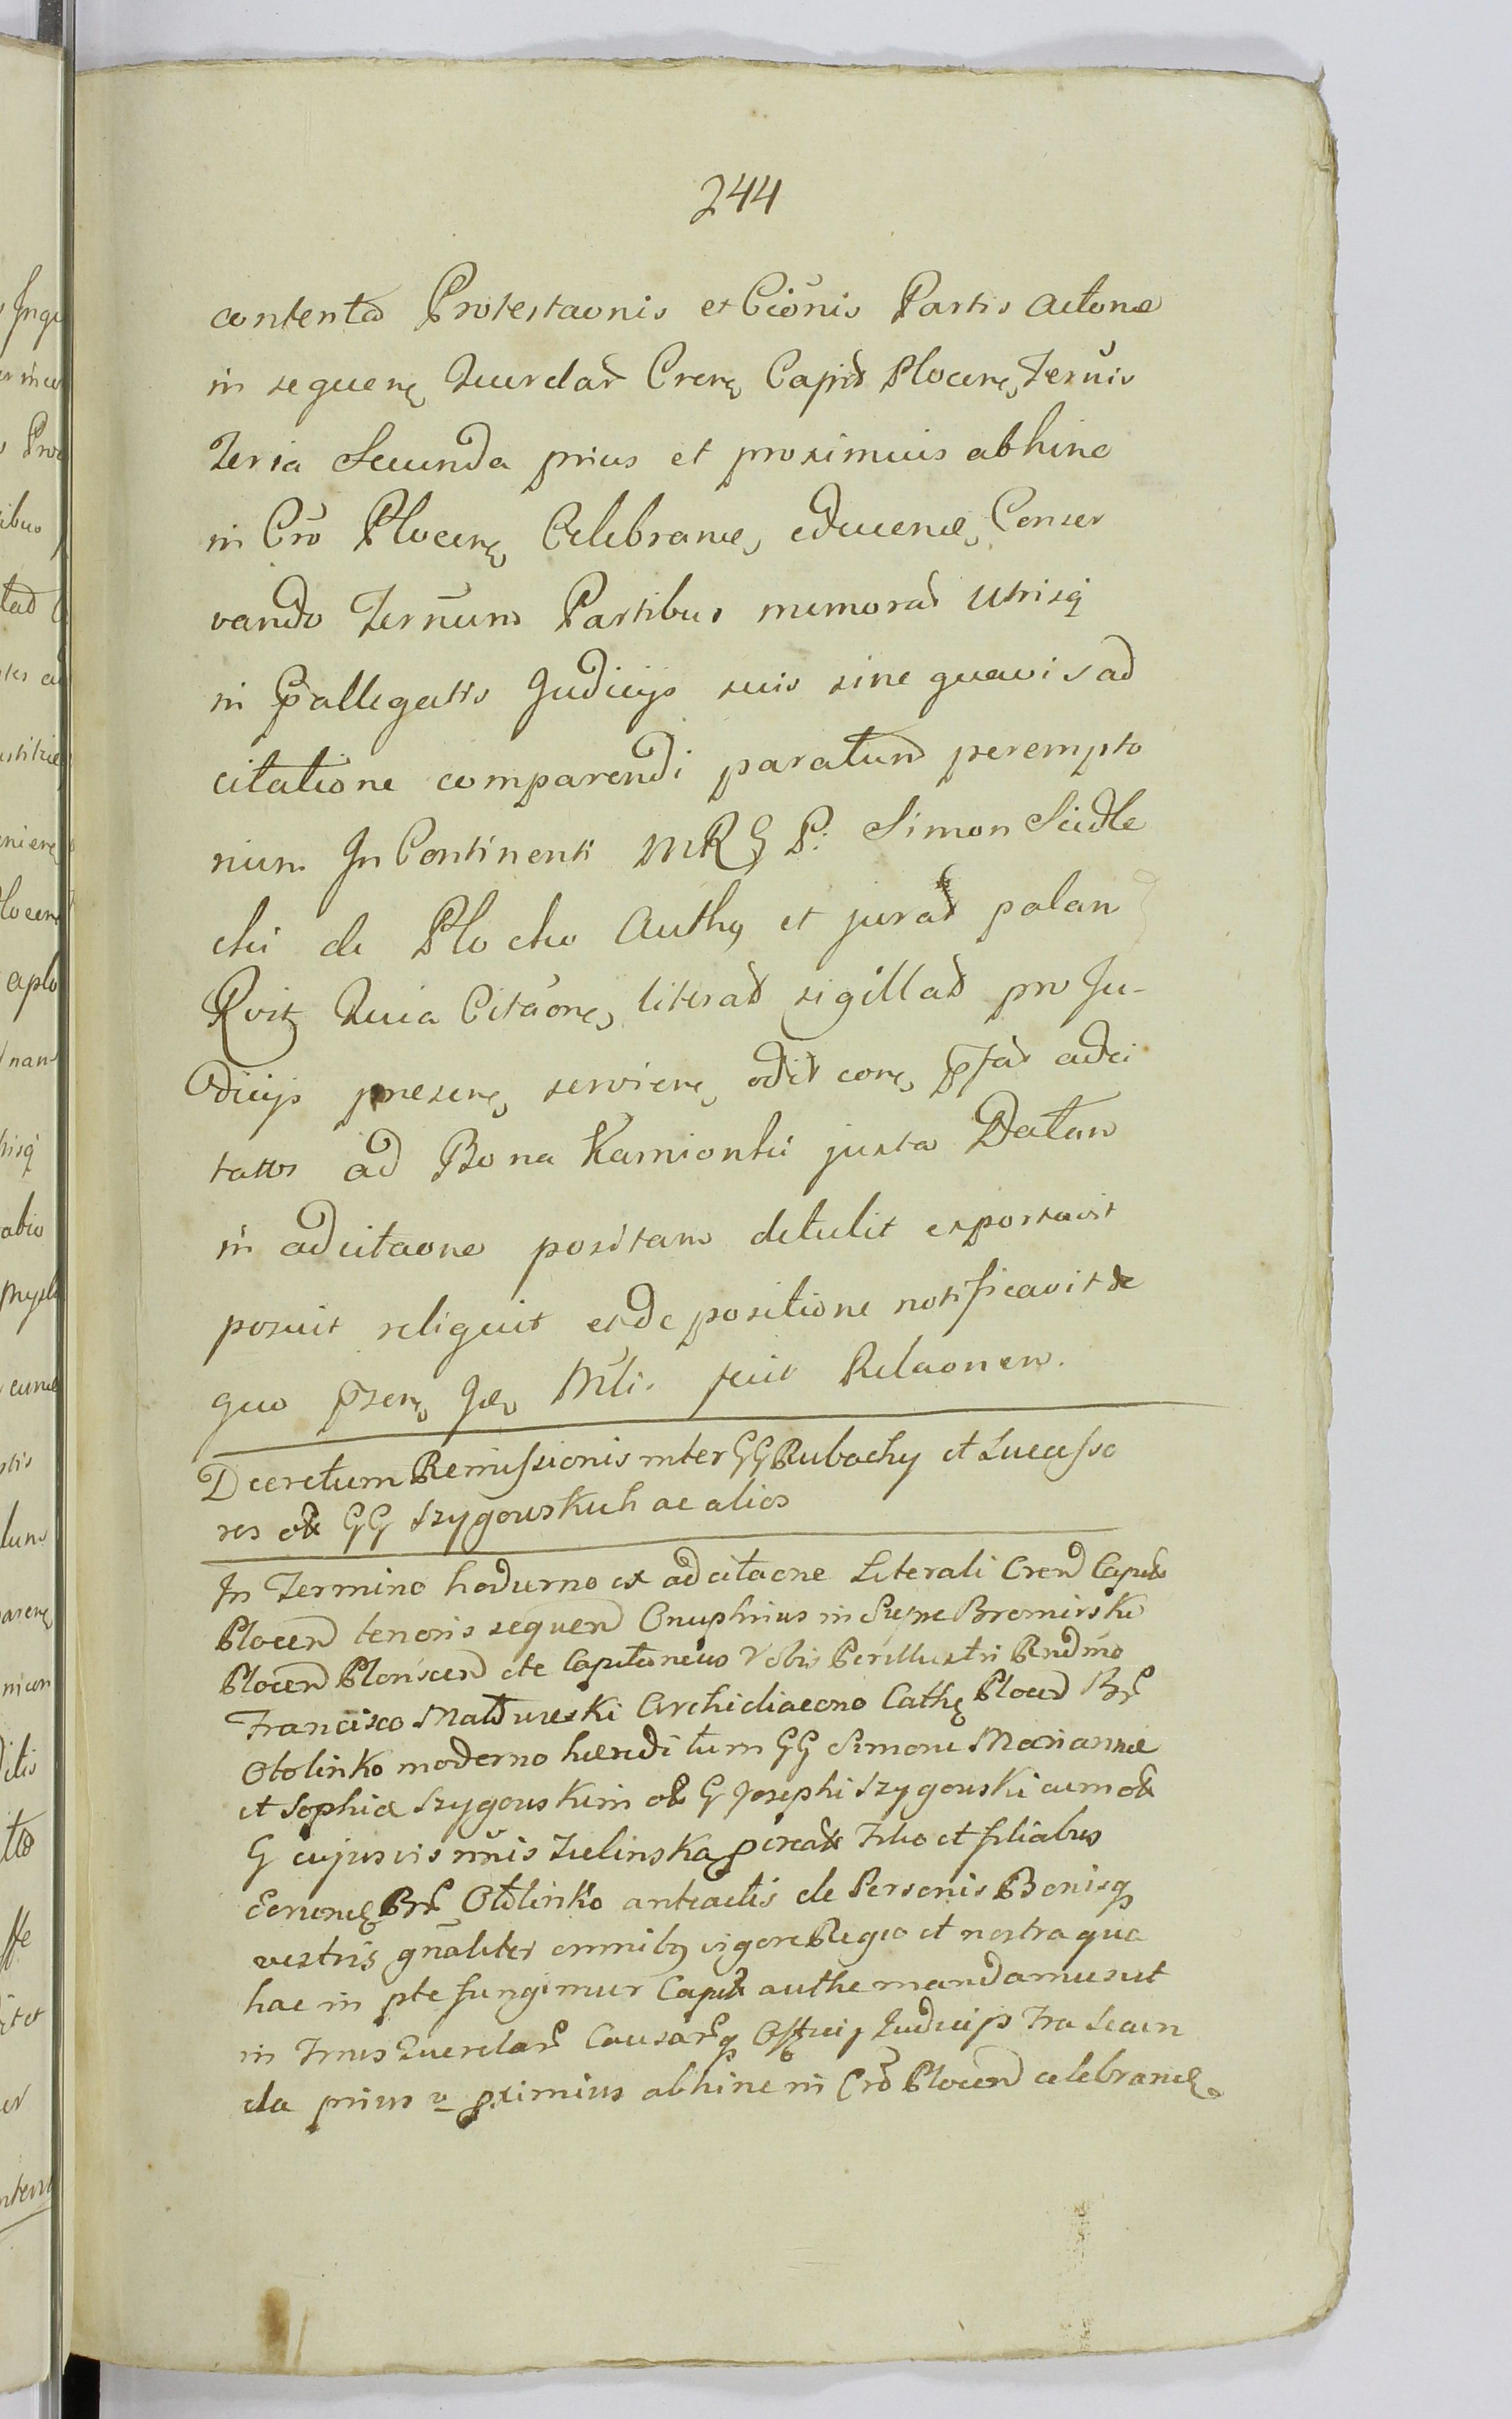 244
contenta Protestaonis et Cionis Partis Actorae
in sequen Querelar Cren Capit Plocen Ternis
Feria Secunda prius et proximius abhinc
in Cro Plocen Celebran educen Conser
vando Ternum Partibus memorat utrisq
in pallegatis Judicijs suis sine quavis ad
citatione comparendi paratum perempto
rium In Continenti MRG P. Simon Siedle
cki de Plocko Auth et jurat palam
Rvit Quia Citaone literat sigillat pro Ju-
dicijs presen servien odit con pfat adci
tattos ad Bona Kamionki juxta Datam
in adcitaone positam detulit exportavit
posuit reliquit et de positione notificavit de
quo psen Jo Mli. fecit Relaonem.
Decretum Remissionis inter GG Rubachy et Sucesso
res ott GG Szygowskich ac alios
In Termino hodierno ex adcitaone Literali Cren Capit
Plocen tenoris sequen Onuphrius in Siepie Bromirski
Plocen Plonscen etc Capitaneus Vobis Perillustri Rndmo
Francisco Maltureski Archidiacono Cath Plocen Br
Otolinko moderno haeredi tum GG Simoni Mariannae
et Sophiae Szygowskim ott G Josephi Szygowski cum ott
G cujusvis nnis Zielinska pcreatt Filio et filiabus
Eorum Br Otolinko anteactis de Personis Bonisq
vestris gnaliter omnibq vigore Regio et nostra qua
hac in pte fungimur Capit authe mandamus ut
in Trnis Querelar Causarq Officij Judicijs Fra Secun
da prius v pximius abhinc in Cro Plocen celebran